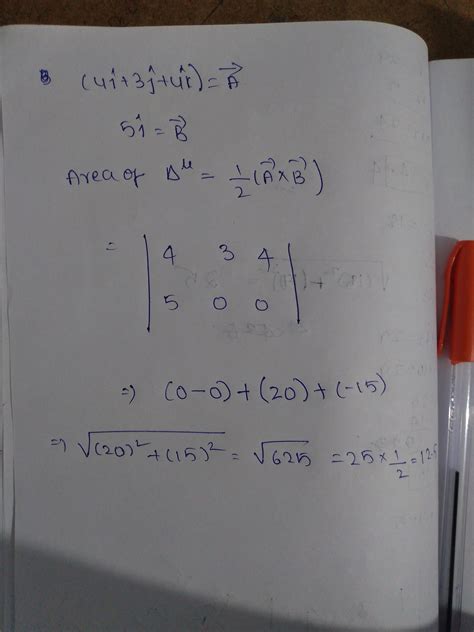 (4î+3ĵ+4k̂)=A⃗
5î=B⃗
Area of Δ^le = 1/2(A⃗×B⃗)
= |4 3 4|
|5 0 0|
⇒ (0-0)+(20)+(-15)
⇒ √(20)²+(15)² = √625 =25×1/2=12.5